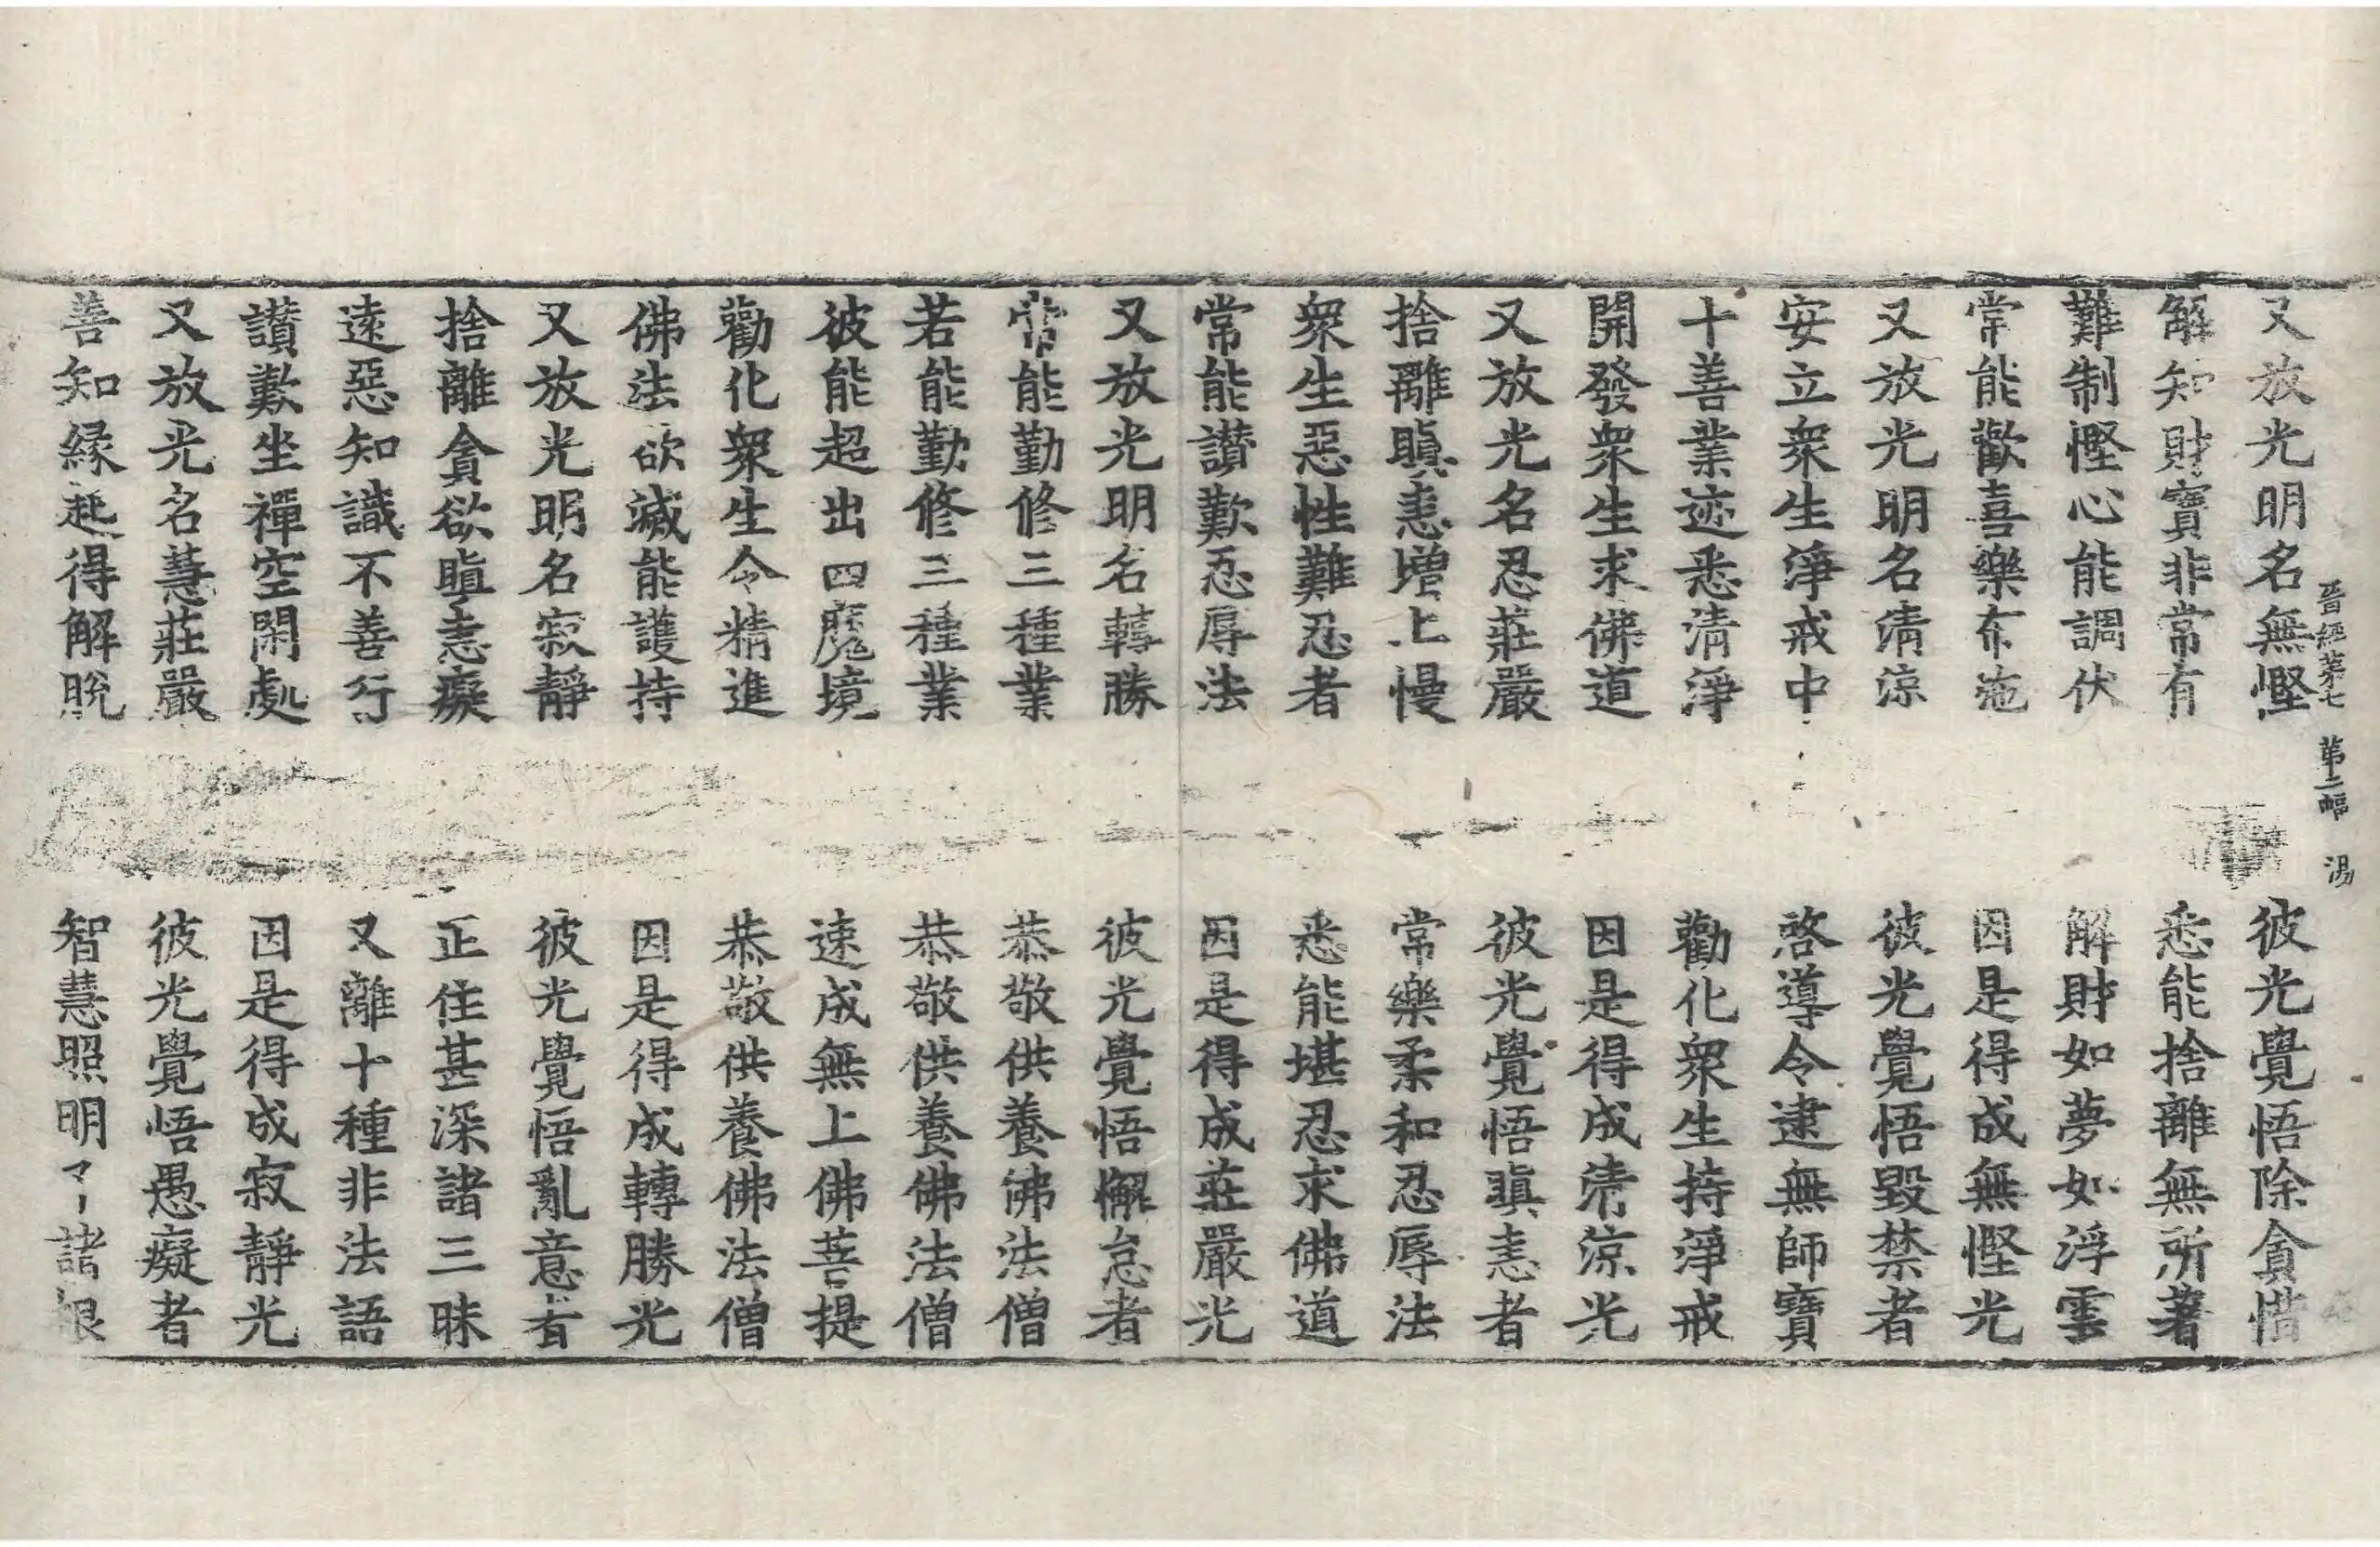 晉經第七 第二幅 湯
又放光明名無慳 彼光覺悟除貪惜
解知財寶非常有 悉能捨離無所著
難制慳心能調伏 解財如夢如浮雲
常能歡喜樂布施 因是得成無慳光
又放光明名清涼 彼光覺悟毀禁者
安立衆生淨戒中 啓導令逮無師寶
十善業迹悉清淨 勸化衆生持淨戒
開發衆生求佛道 因是得成清涼光
又放光名忍莊嚴 彼光覺悟瞋恚者
捨離瞋恚增上慢 常樂柔和忍辱法
衆生惡性難忍者 悉能堪忍求佛道
常能讃歎忍辱法 因是得成莊嚴光
又放光明名轉勝 彼光覺悟懈怠者
常能勤修三種業 恭敬供養佛法僧
若能勤修三種業 恭敬供養佛法僧
彼能超出四魔境 速成無上佛菩提
勸化衆生令精進 恭敬供養佛法僧
佛法欲滅能護持 因是得成轉勝光
又放光明名寂靜 彼光覺悟亂意者
捨離貪欲瞋恚癡 正住甚深諸三昧
遠惡知識不善行 又離十種非法語
讃歎坐禪空閑處 因是得成寂靜光
又放光名慧莊嚴 彼光覺悟愚癡者
善知縁起得解脫 智慧照明了諸根